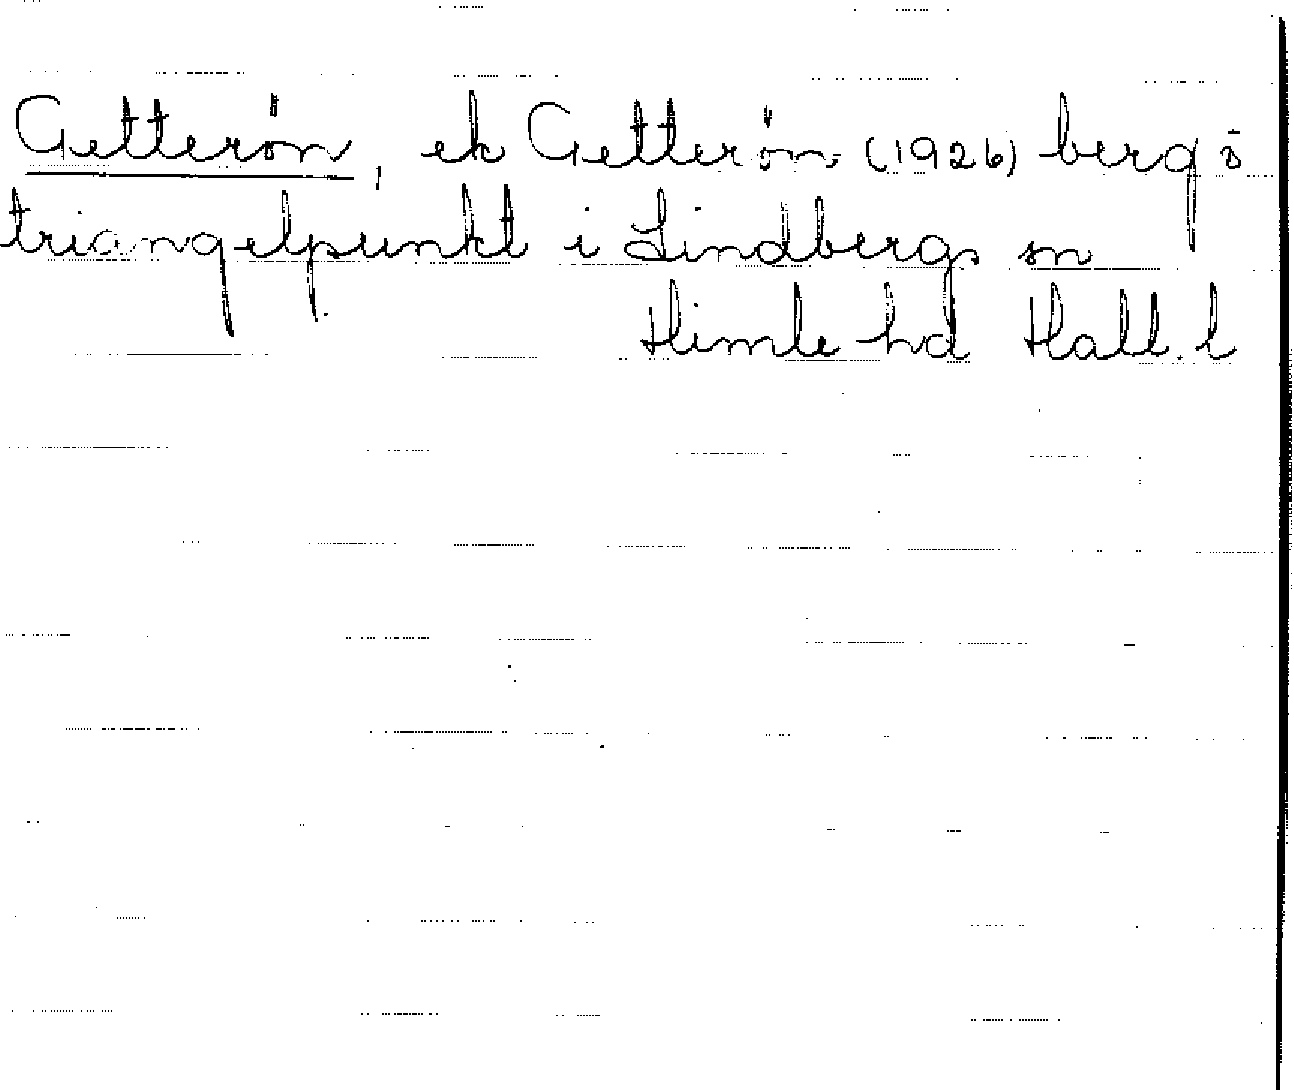 Getterön, ek Getterön (1926) berg ö
triangelpunkt i Lindbergs sn
Himle hd Hall. l